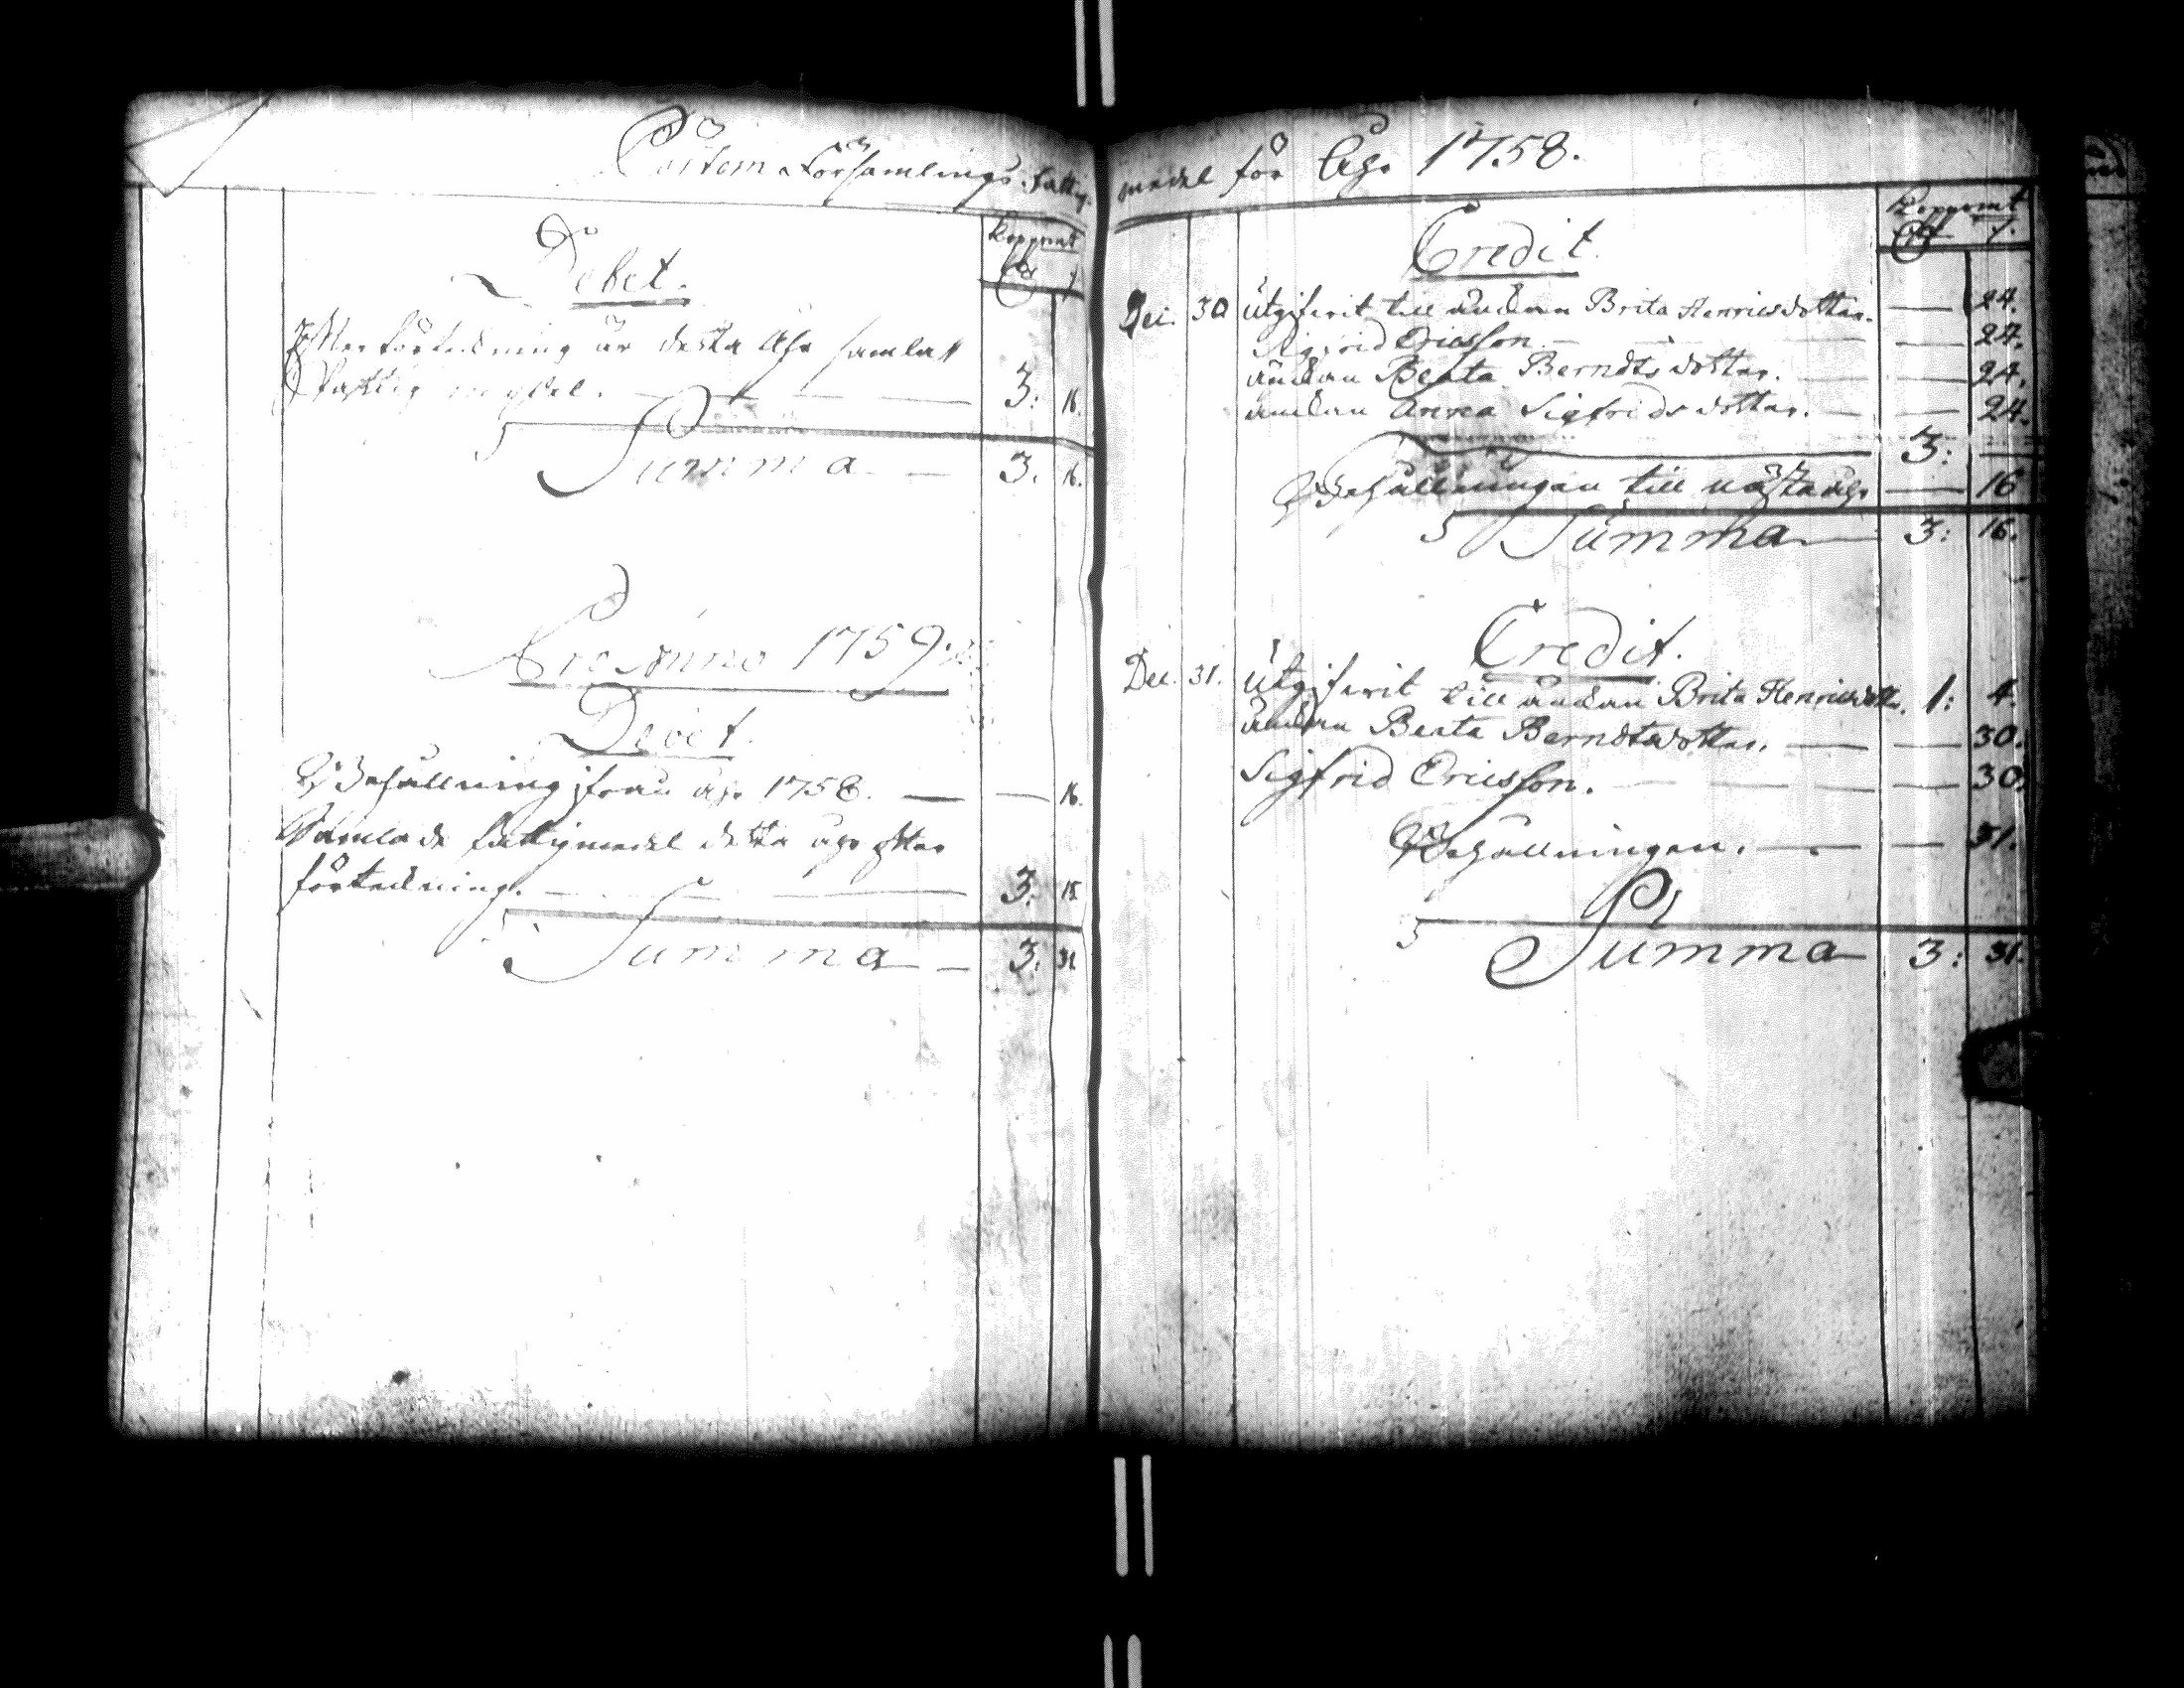 Församlings fattig
Debet.
Kopparmt
Efter förteckning är detta åhr samlat
fattig medel. 3: 16.
Summa 3. 16.
Pro Anno 1759.
Debet.
Behållning ifrån åhr 1758. 16.
Samlade fattigmedel detta åhr efter
förteckning. 3. 15.
Summa 3. 31.
medel för Åhr 1758.
Kopparmt
Credit.
Dec. 30 Utgifwit till änkan Brita Henricsdotter. 24.
Sigfrid Ericsson 24.
änkan Beata Berndtsdotter. 24.
änkan Anna Sigfridsdotter. 24.
3:
Behållningen till nästa åhr 16
Summa 3: 16.
Credit.
Dec. 31. Utgifwit till änkan Brita Henricsdotter. 1: 4.
änkan Beata Berndtsdotter. 30.
Sigfrid Ericsson. 30.
Behållningen. 31.
Summa 3: 31.